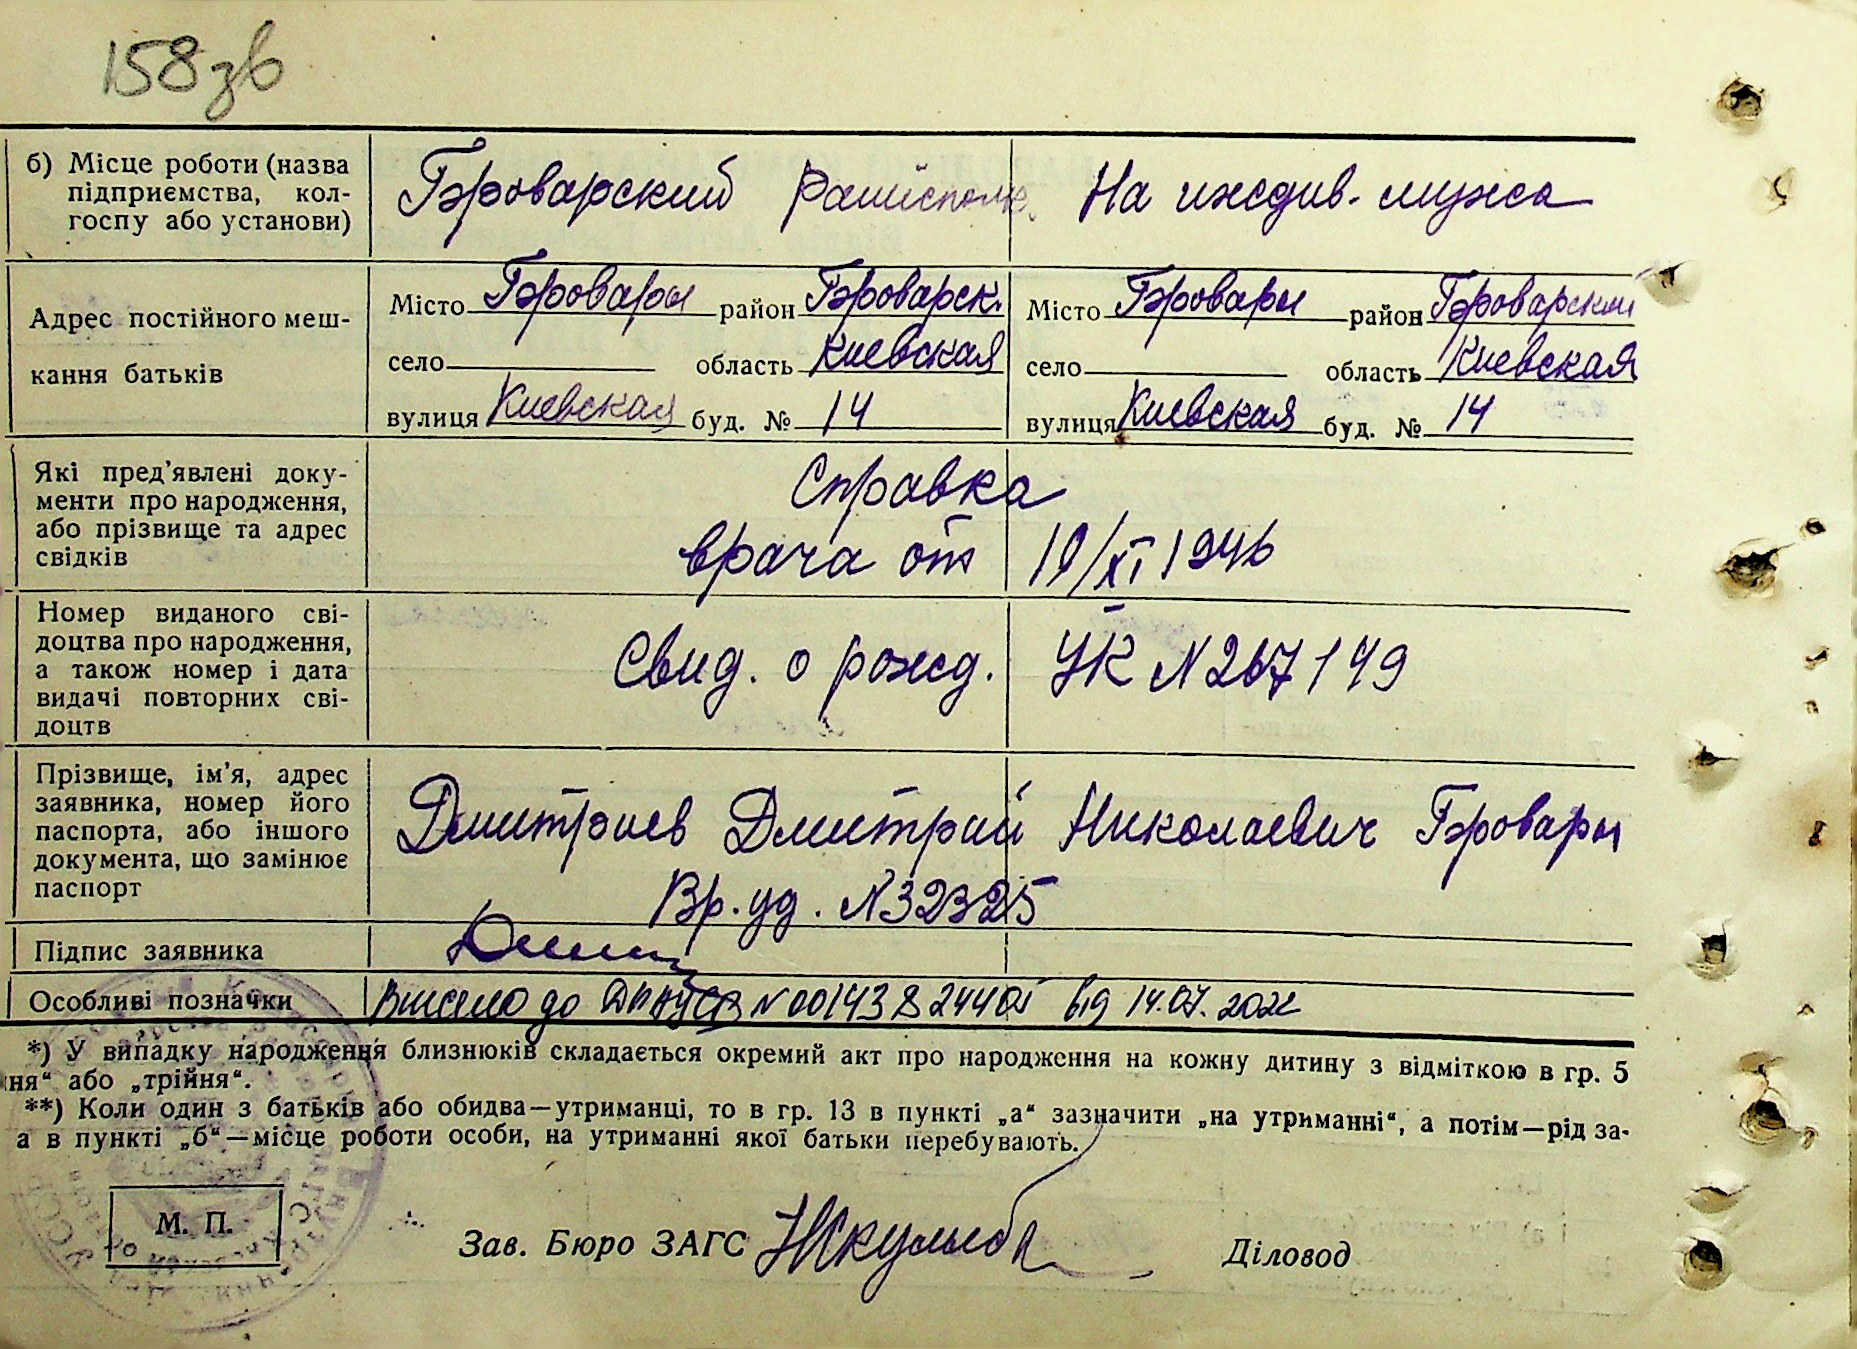 158зв
б) Місце роботи (назва підприємства, колгоспу або установи)
Броварский райисполк. На иждив. мужа
Адрес постійного мешкання батьків
Місто Бровары район Броварск. Місто Бровары район Броварский
село область Киевская село область Киевская
вулиця Киевская буд. № 14 вулиця Киевская буд. № 14
Які пред'явлені документи про народження, або прізвище та адрес свідків
Справка
врача от 19/XI 1946
Номер виданого свідоцтва про народження, а також номер і дата видачі повторних свідоцтв
Свид. о рожд. УК N 267149
Прізвище, ім'я, адрес заявника, номер його паспорта, або іншого документа, що замінює паспорт
Дмитриев Дмитрий Николаевич Бровары
Вр. уд. N 32325
Підпис заявника
Особливі позначки
Внесено до ДРАЦСГ N 00143824401 від 14.07.2022
*) У випадку народження близнюків складається окремий акт про народження на кожну дитину з відміткою в гр. 5
ня“ або „трійня“.
**) Коли один з батьків або обидва—утриманці, то в гр. 13 в пункті „а“ зазначити „на утриманні“, а потім—рід за-
а в пункті „б“—місце роботи особи, на утриманні якої батьки перебувають.
М. П.
Зав. Бюро ЗАГС
Діловод